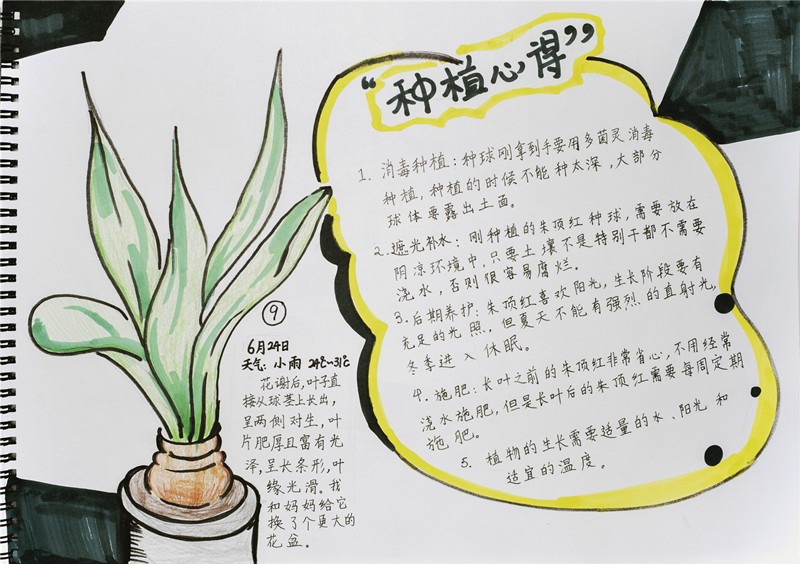 “种植心得”
1. 消毒种植：种球刚拿到手要用多菌灵消毒
种植，种植的时候不能种太深，大部分
球体要露出土面。
2.遮光补水：刚种植的朱顶红种球，需要放在
阴凉环境中，只要土壤不是特别干都不需要
浇水，否则很容易腐烂。
3.后期养护：朱顶红喜欢阳光，生长阶段要有
充足的光照，但夏天不能有强烈的直射光，
冬季进入休眠。
4. 施肥：长叶之前的朱顶红非常省心，不用经常
浇水施肥，但是长叶后的朱顶红需要每周定期
施肥。
5. 植物的生长需要适量的水、阳光和
适宜的温度。
⑨
6月24日
天气：小雨 24℃~31℃
花谢后，叶子直
接从球茎上长出，
呈两侧对生，叶
片肥厚且富有光
泽，呈长条形，叶
缘光滑。我
和妈妈给它
换了个更大的
花盆。